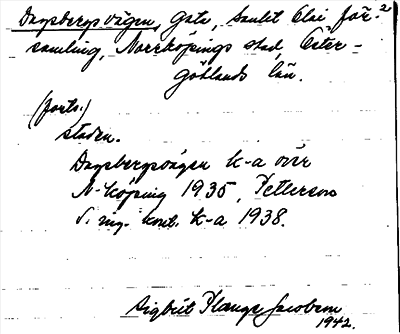 Dagsbergsvägen, Gata, Sankt Olai för- 2
samling, Norrköpings stad, Öster-
götlands län.
(forts.)
staden.
Dagsbergsvägen k-a över
N-köping 1935, Petterson
k-a 1938.
Sigbrit Plange Jacobson
1942.